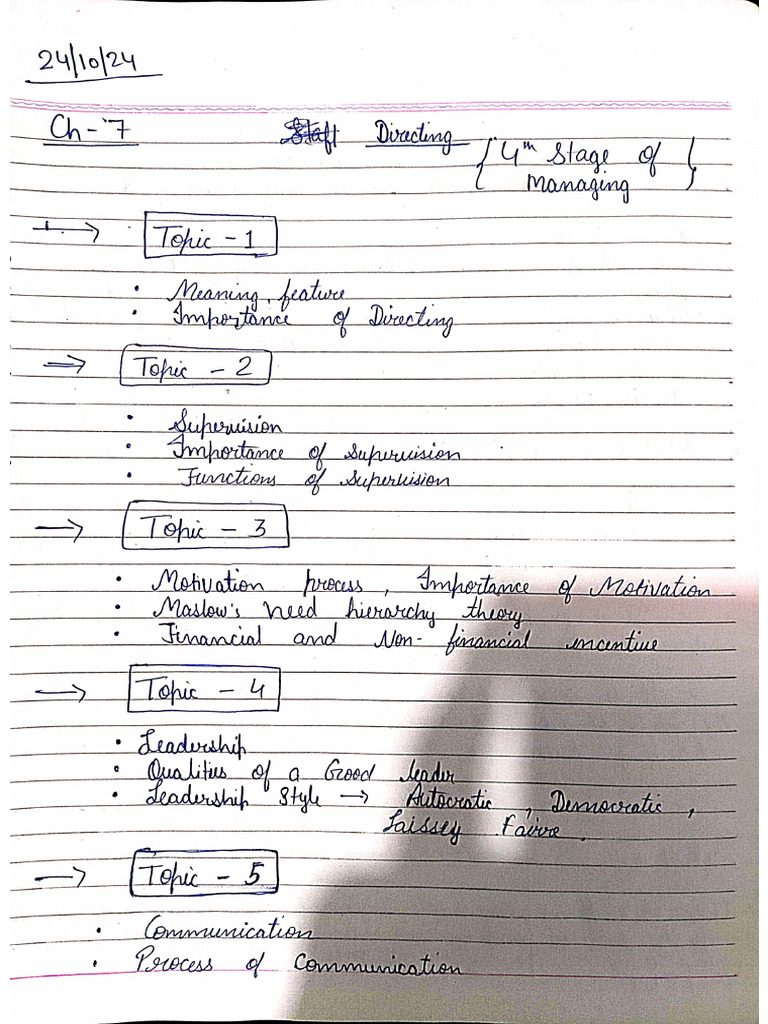 24/10/24
Ch-7 Directing { 4th Stage of
managing }
→ Topic - 1
• Meaning, feature
• Importance of Directing
→ Topic - 2
• Supervision
• Importance of Supervision
• Functions of Supervision
→ Topic - 3
• Motivation process, Importance of Motivation
• Maslow's need hierarchy theory
• Financial and Non-financial incentive
→ Topic - 4
• Leadership
• Qualities of a Good leader
• Leadership Style → Autocratic, Democratic,
Laissey Fairre.
→ Topic - 5
• Communication
• Process of Communication